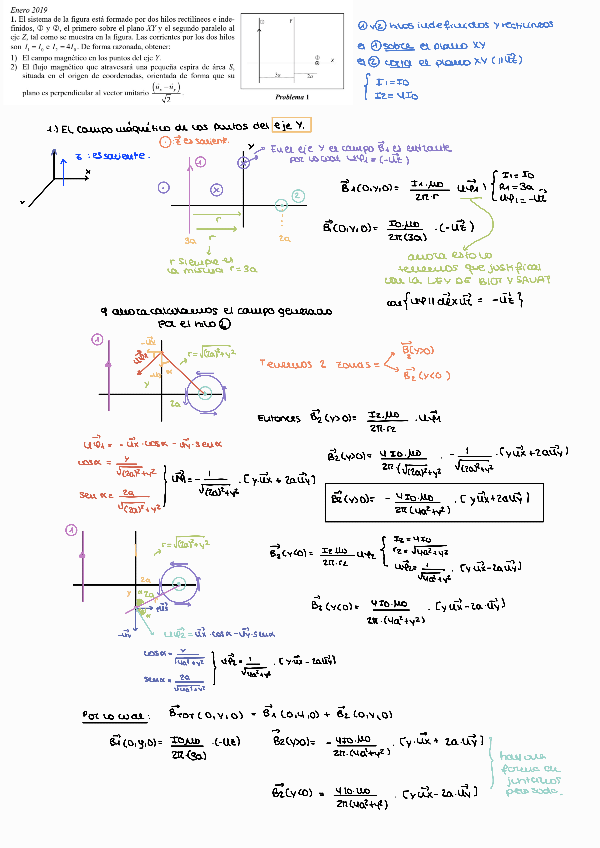 Enero 2019
1. El sistema de la figura está formado por dos hilos rectilíneos e inde-
finidos, ① y ②, el primero sobre el plano XY y el segundo paralelo al
eje Z, tal como se muestra en la figura. Las corrientes por los dos hilos
son I₁ = I₀ e I₂ = 4I₀. De forma razonada, obtener:
1) El campo magnético en los puntos del eje Y.
2) El flujo magnético que atravesará una pequeña espira de área S,
situada en el origen de coordenadas, orientada de forma que su
plano es perpendicular al vector unitario (u⃗x − u⃗y)/√2.
Problema 1
① y ② hilos indefinidos y rectilíneos
① sobre el plano XY
② corta el plano XY (|| uz)
{ I1 = I0
I2 = 4I0
1.) El campo magnético de los puntos del eje Y.
z : es saliente.
⊙ : z es saliente.
En el eje Y el campo B1 es entrante
por lo cual uφ1 = (-uz)
3a
2a
r
r siempre es
la misma r = 3a
B1(0,y,0) = I1·μ0 / 2π·r · uφ1 { I1 = I0
R1 = 3a
uφ1 = -uz
B(0,y,0) = I0·μ0 / 2π(3a) · (-uz)
ahora esto lo
tenemos que justificar
con la LEY DE BIOT Y SAVAT
ahora calculamos el campo generado
por el hilo ②
r = √(2a)²+y²
Tenemos 2 zonas = B2(y>0)
B2(y<0)
Entonces B2(y>0) = I2·μ0 / 2π·r2 · uφ1
uφ1 = - ux·cosα - uy·senα
cosα = y / √(2a)²+y²
senα = 2a / √(2a)²+y²
uφ1 = - 1 / √(2a)²+y² · [y ux + 2a uy]
B2(y>0) = 4I0·μ0 / 2π√(2a)²+y² · - 1 / √(2a)²+y² · [y ux + 2a uy]
B2(y>0) = - 4I0·μ0 / 2π(4a²+y²) · [y ux + 2a uy]
r = √(2a)²+y²
B2(y<0) = I2·μ0 / 2π·r2 · uφ2 { I2 = 4I0
r2 = √4a²+y²
uφ2 = 1 / √4a²+y² · [y ux - 2a uy]
B2(y<0) = 4I0·μ0 / 2π·(4a²+y²) · [y ux - 2a·uy]
uφ2 = ux·cosα - uy·senα
cosα = y / √4a²+y²
senα = 2a / √4a²+y²
uφ2 = 1 / √4a²+y² · [y·ux - 2a uy]
Por lo cual: BTOT(0,y,0) = B1(0,y,0) + B2(0,y,0)
B1(0,y,0) = I0·μ0 / 2π·(3a) · (-uz)
B2(y>0) = - 4I0·μ0 / 2π·(4a²+y²) · [y·ux + 2a·uy]
B2(y<0) = 4I0·μ0 / 2π(4a²+y²) · [y ux - 2a·uy]
hay una
forma de
juntarlos
pero